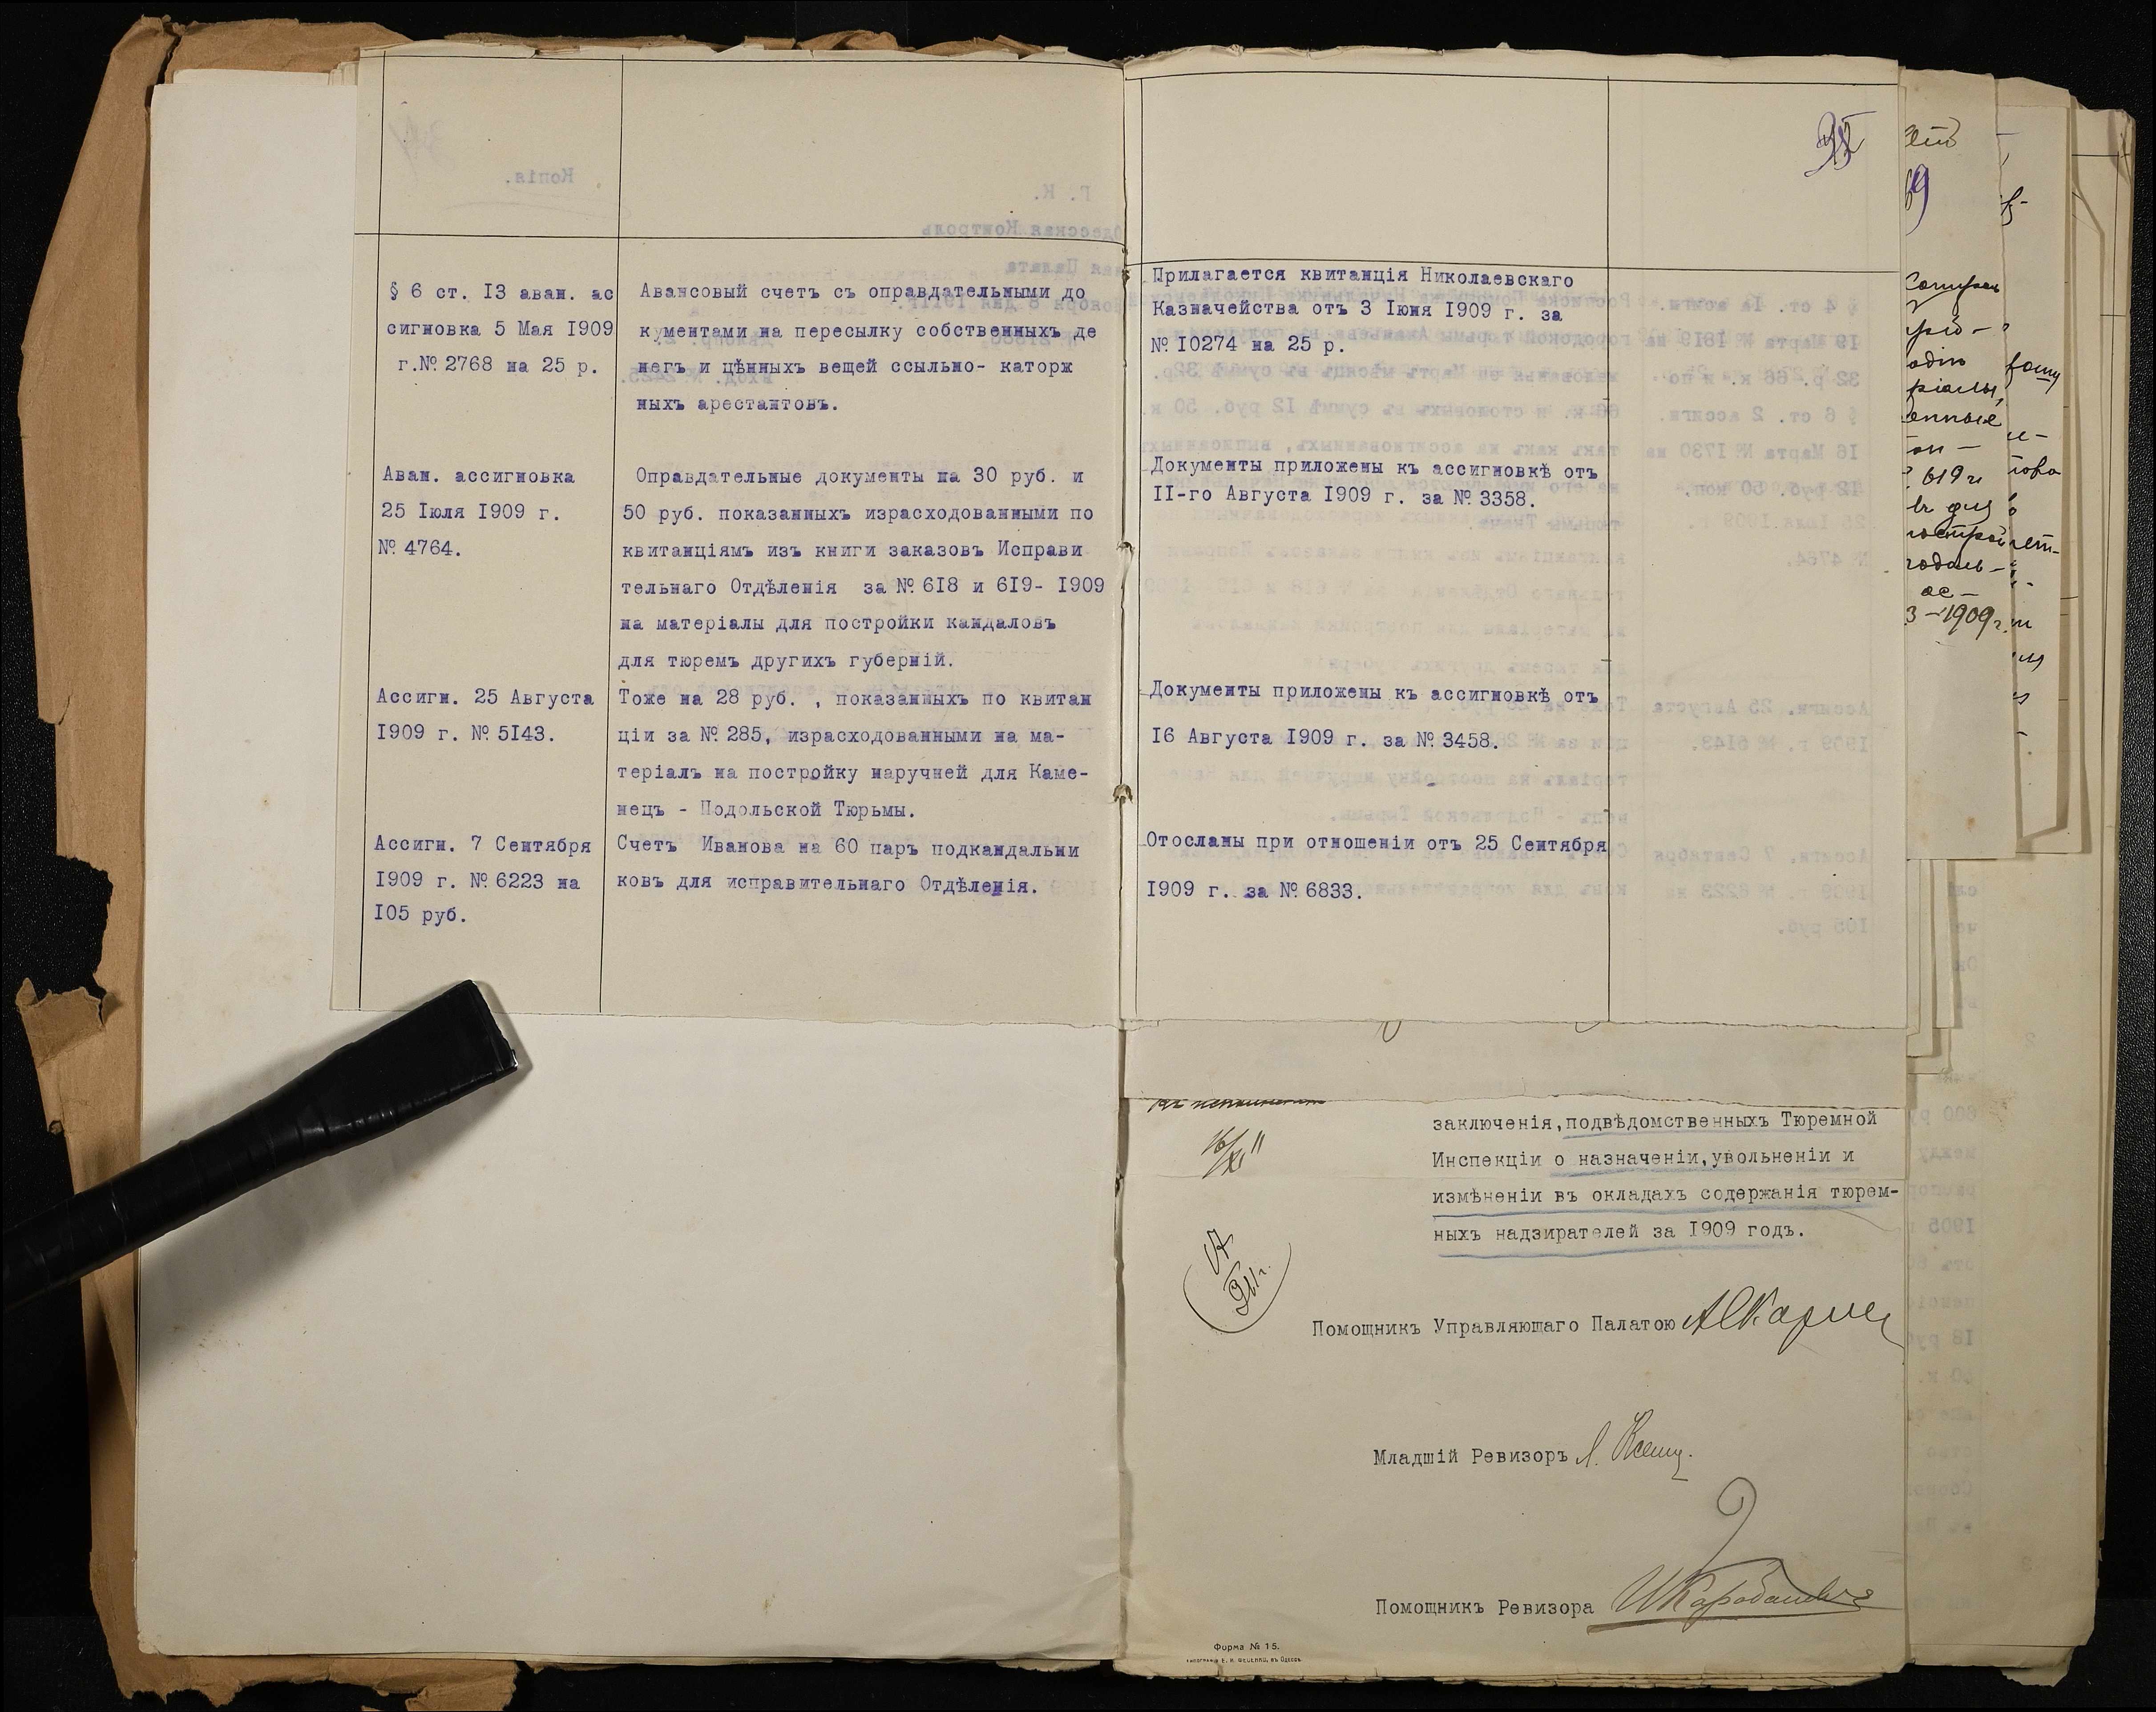 § 6 ст. I3 аван. ас
сигновка 5 Мая I909
г.№ 2768 на 25 р.
Авансовый счетъ съ оправдательными до
кументами на пересылку собственныхъ де
негъ и цѣнныхъ вещей ссыльно- каторж
ныхъ арестантовъ.
Прилагается квитанція Николаевскаго
Казначейства отъ 3 Іюня I909 г. за
№ I0274 на 25 р.
Аван. ассигновка
25 Іюля I909 г.
№ 4764.
Оправдательные документы на 30 руб. и
50 руб. показанныхъ израсходованными по
квитанціямъ изъ книги заказовъ Исправи
тельнаго Отдѣленія за № 6I8 и 6I9- I909
на матеріалы для постройки кандаловъ
для тюремъ другихъ губерній.
Документы приложены къ ассигновкѣ отъ
II-го Августа I909 г. за № 3358.
Ассигн. 25 Августа
I909 г. № 5I43.
Тоже на 28 руб. , показанныхъ по квитан
ціи за № 285, израсходованными на ма-
теріалъ на постройку наручней для Каме-
нецъ - Подольской Тюрьмы.
Документы приложены къ ассигновкѣ отъ
I6 Августа I909 г. за № 3458.
Ассигн. 7 Сентября
I909 г. № 6223 на
I05 руб.
Счетъ Иванова на 60 паръ подкандальни
ковъ для исправительнаго Отдѣленія.
Отосланы при отношеніи отъ 25 Сентября
I909 г. за № 6833.
заключенія,подвѣдомственныхъ Тюремной
Инспекціи о назначеніи,увольненіи и
измѣненіи въ окладахъ содержанія тюрем-
ныхъ надзирателей за I909 годъ.
16/XI 11
Помощникъ Управляющаго Палатою
Младшій Ревизоръ
Помощникъ Ревизора
Форма № 15.
619 г
3 - 1909 г.